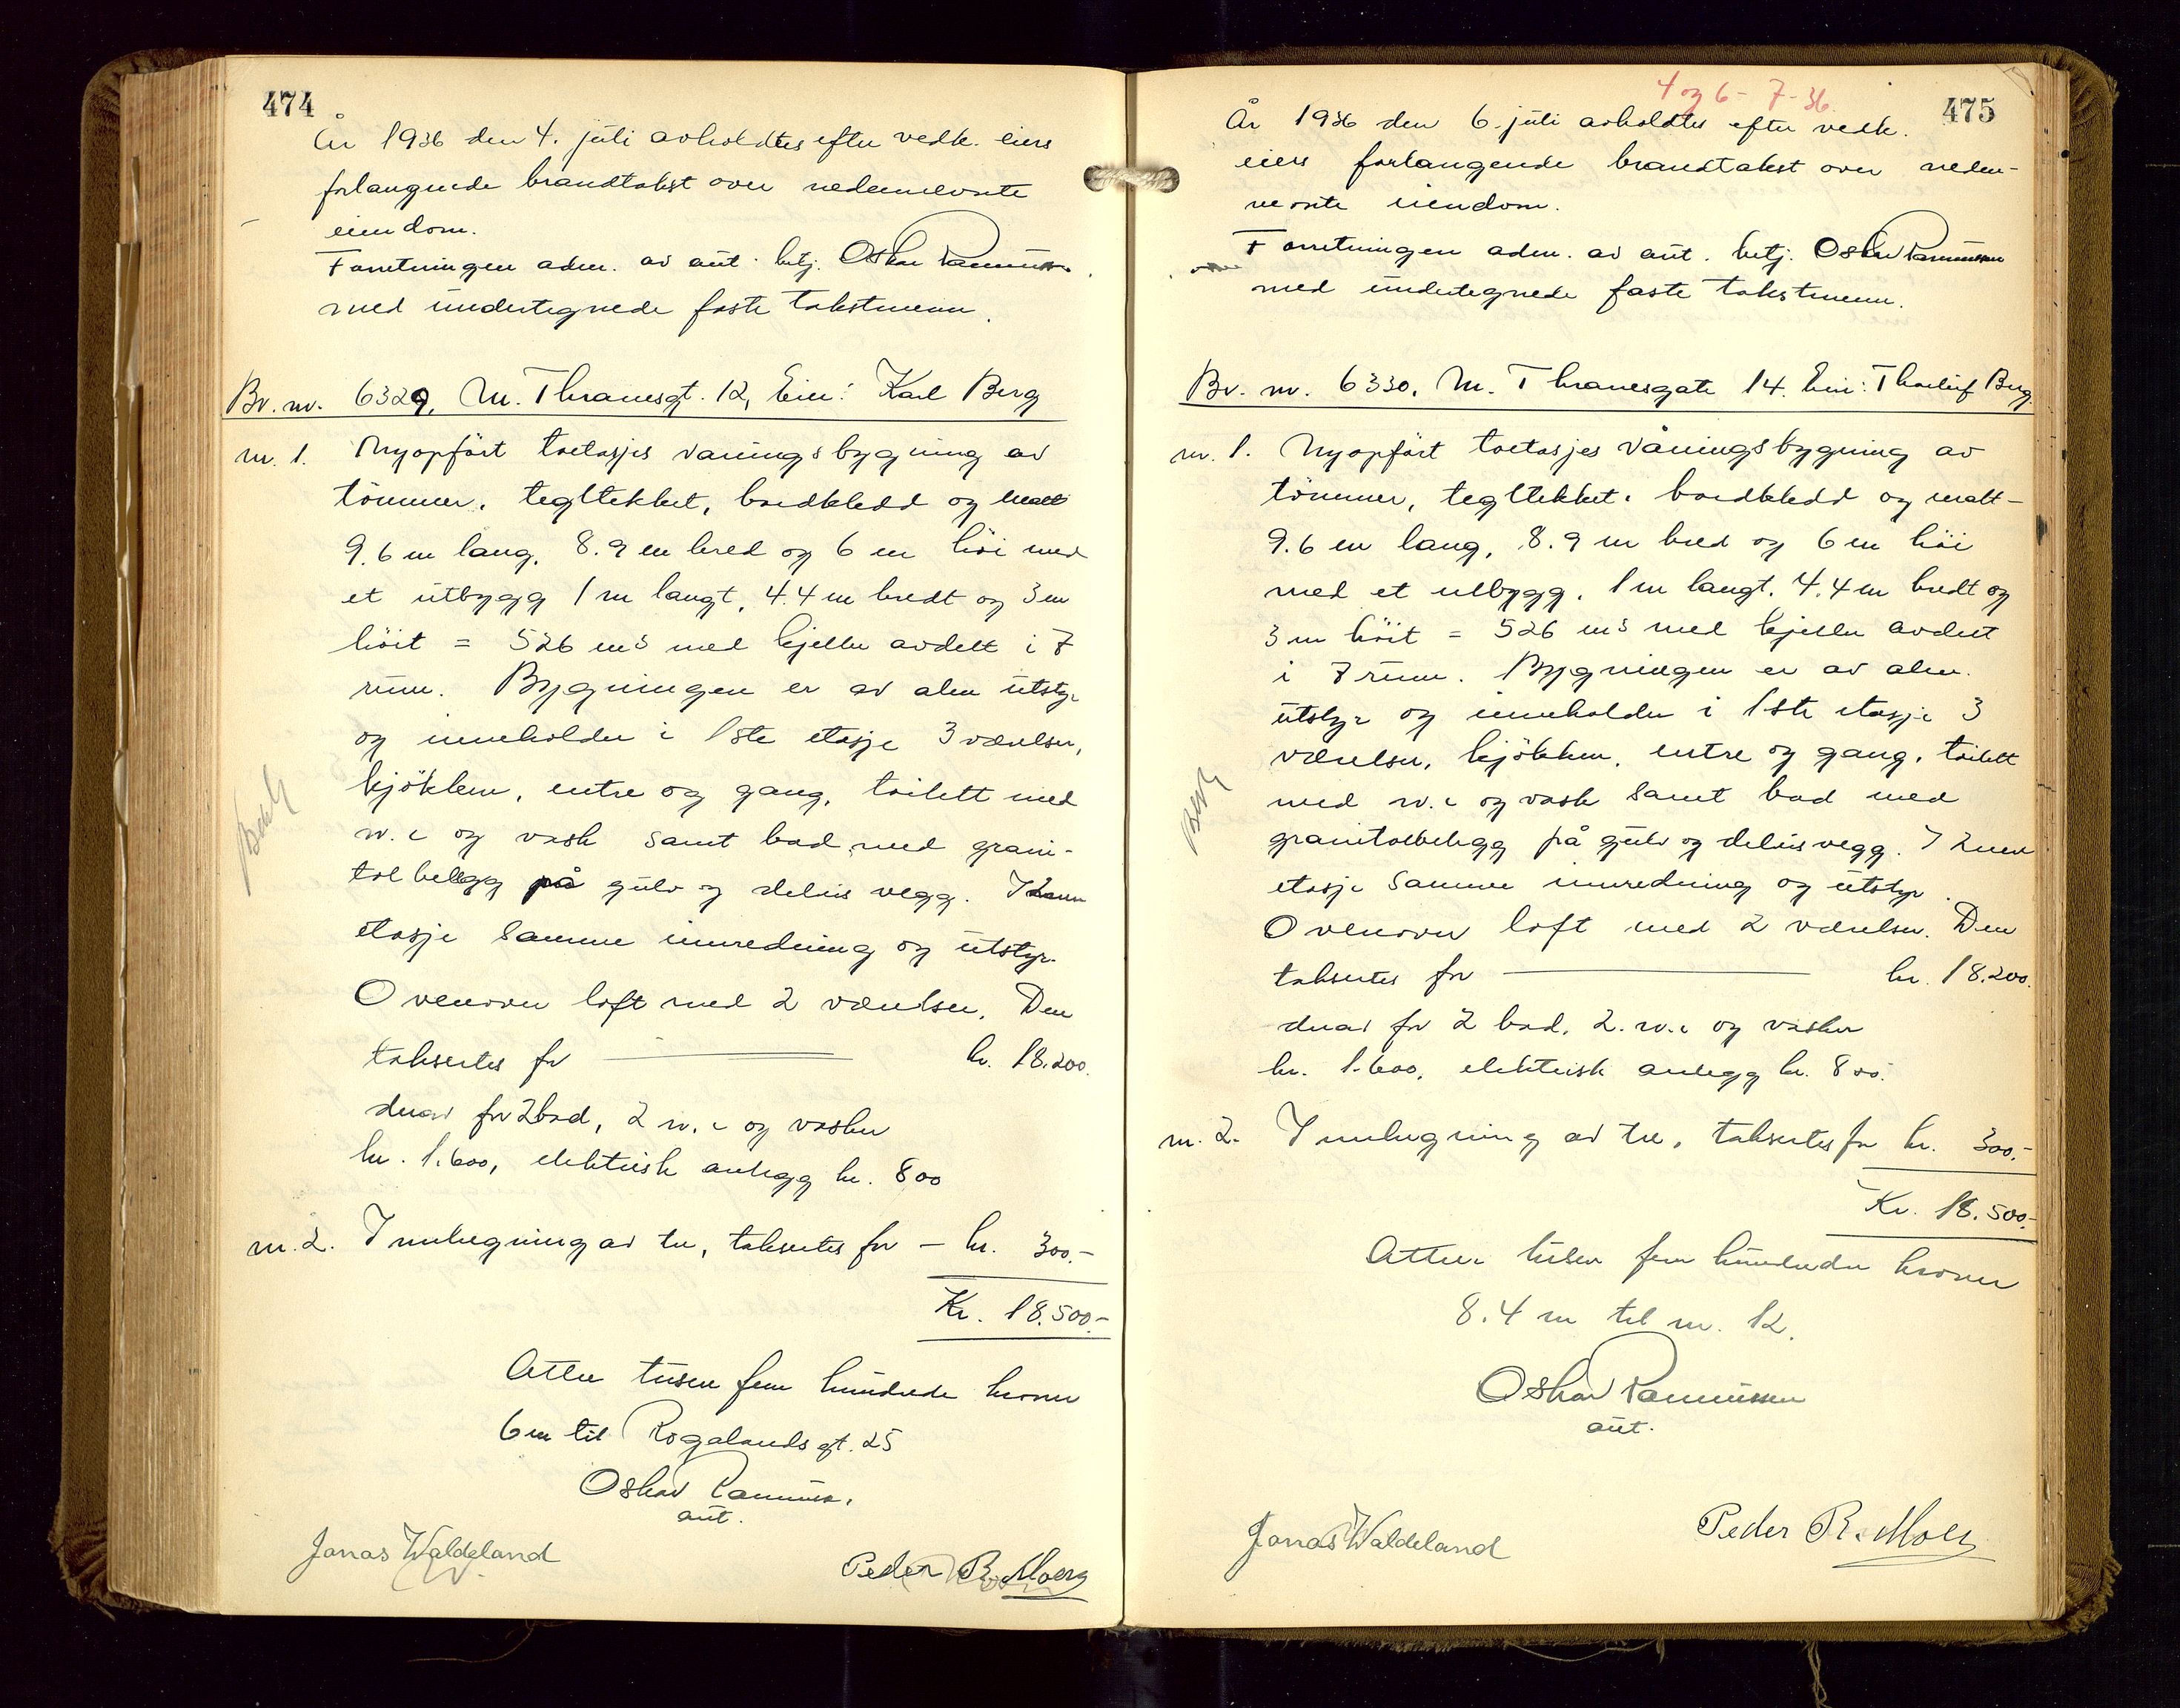 474
År 1936 den 4. juli avholdtes efter vedk. eiers
forlangende brandtakst over nedennevnte
eiendom.
Forretningen adm. av aut. betj. Oskar Rasmussen
med undertegnede faste takstmenn.
Br. nr. 6329, M. Thranesgt. 12, Eier: Karl Berg
nr. 1. Nyopført toetasjes våningsbygning av
tømmer, tegltekket, bordkledd og malt
9.6 m lang, 8.9 m bred og 6 m høi med
et utbygg 1 m langt, 4.4 m bredt og 3 m
høit = 526 m3 med kjeller avdelt i 7
rum. Bygningen er av alm utstyr
og inneholder i 1ste etasje 3 værelser,
kjøkken, entre og gang, toilett med
w.c og vask samt bad med grani-
tolbelegg på gulv og delvis vegg. I 2nen
etasje samme innredning og utstyr.
Ovenover loft med 2 værelser. Den
takseres for kr. 18.200.
derav for 2 bad, 2 w.c og vasker
kr. 1.600, elektrisk anlegg kr. 800
nr. 2. Innhegning av tre, takseres for - kr. 300.-
Kr. 18.500.-
Atten tusen fem hundrede kroner
6 m til Rogalandsgt. 25
Oskar Rasmussen
aut.
Jonas Waldeland
Peder R. Moen
4 og 6 - 7 - 36.
475
År 1936 den 6. juli avholdtes efter vedk.
eiers forlangende brandtakst over neden-
nevnte eiendom.
Forretningen adm. av aut. betj. Oskar Rasmussen
med undertegnede faste takstmenn.
Br. nr. 6330, M. Thranesgate 14. Eier: Thorleif Berg.
nr. 1. Nyopført toetasjes våningsbygning av
tømmer, tegltekket, bordkledd og malt -
9.6 m lang, 8.9 m bred og 6 m høi
med et utbygg, 1 m langt, 4.4 m bredt og
3 m høit = 526 m3 med kjeller avdelt
i 7 rum. Bygningen er av alm.
utstyr og inneholder i 1ste etasje 3
værelser, kjøkken, entre og gang, toilett
med w.c og vask samt bad med
granitolbelegg på gulv og delvis vegg. I 2nen
etasje samme innredning og utstyr.
Ovenover loft med 2 værelser. Den
takseres for kr. 18.200.
derav for 2 bad, 2. w.c og vasker
kr. 1.600, elektrisk anlegg kr. 800.
nr. 2. Innhegning av tre, takseres for kr. 300.-
Kr. 18.500.-
Atten tusen fem hundrede kroner
8.4 m til nr. 12.
Oskar Rasmussen
aut.
Jonas Waldeland
Peder R. Moen